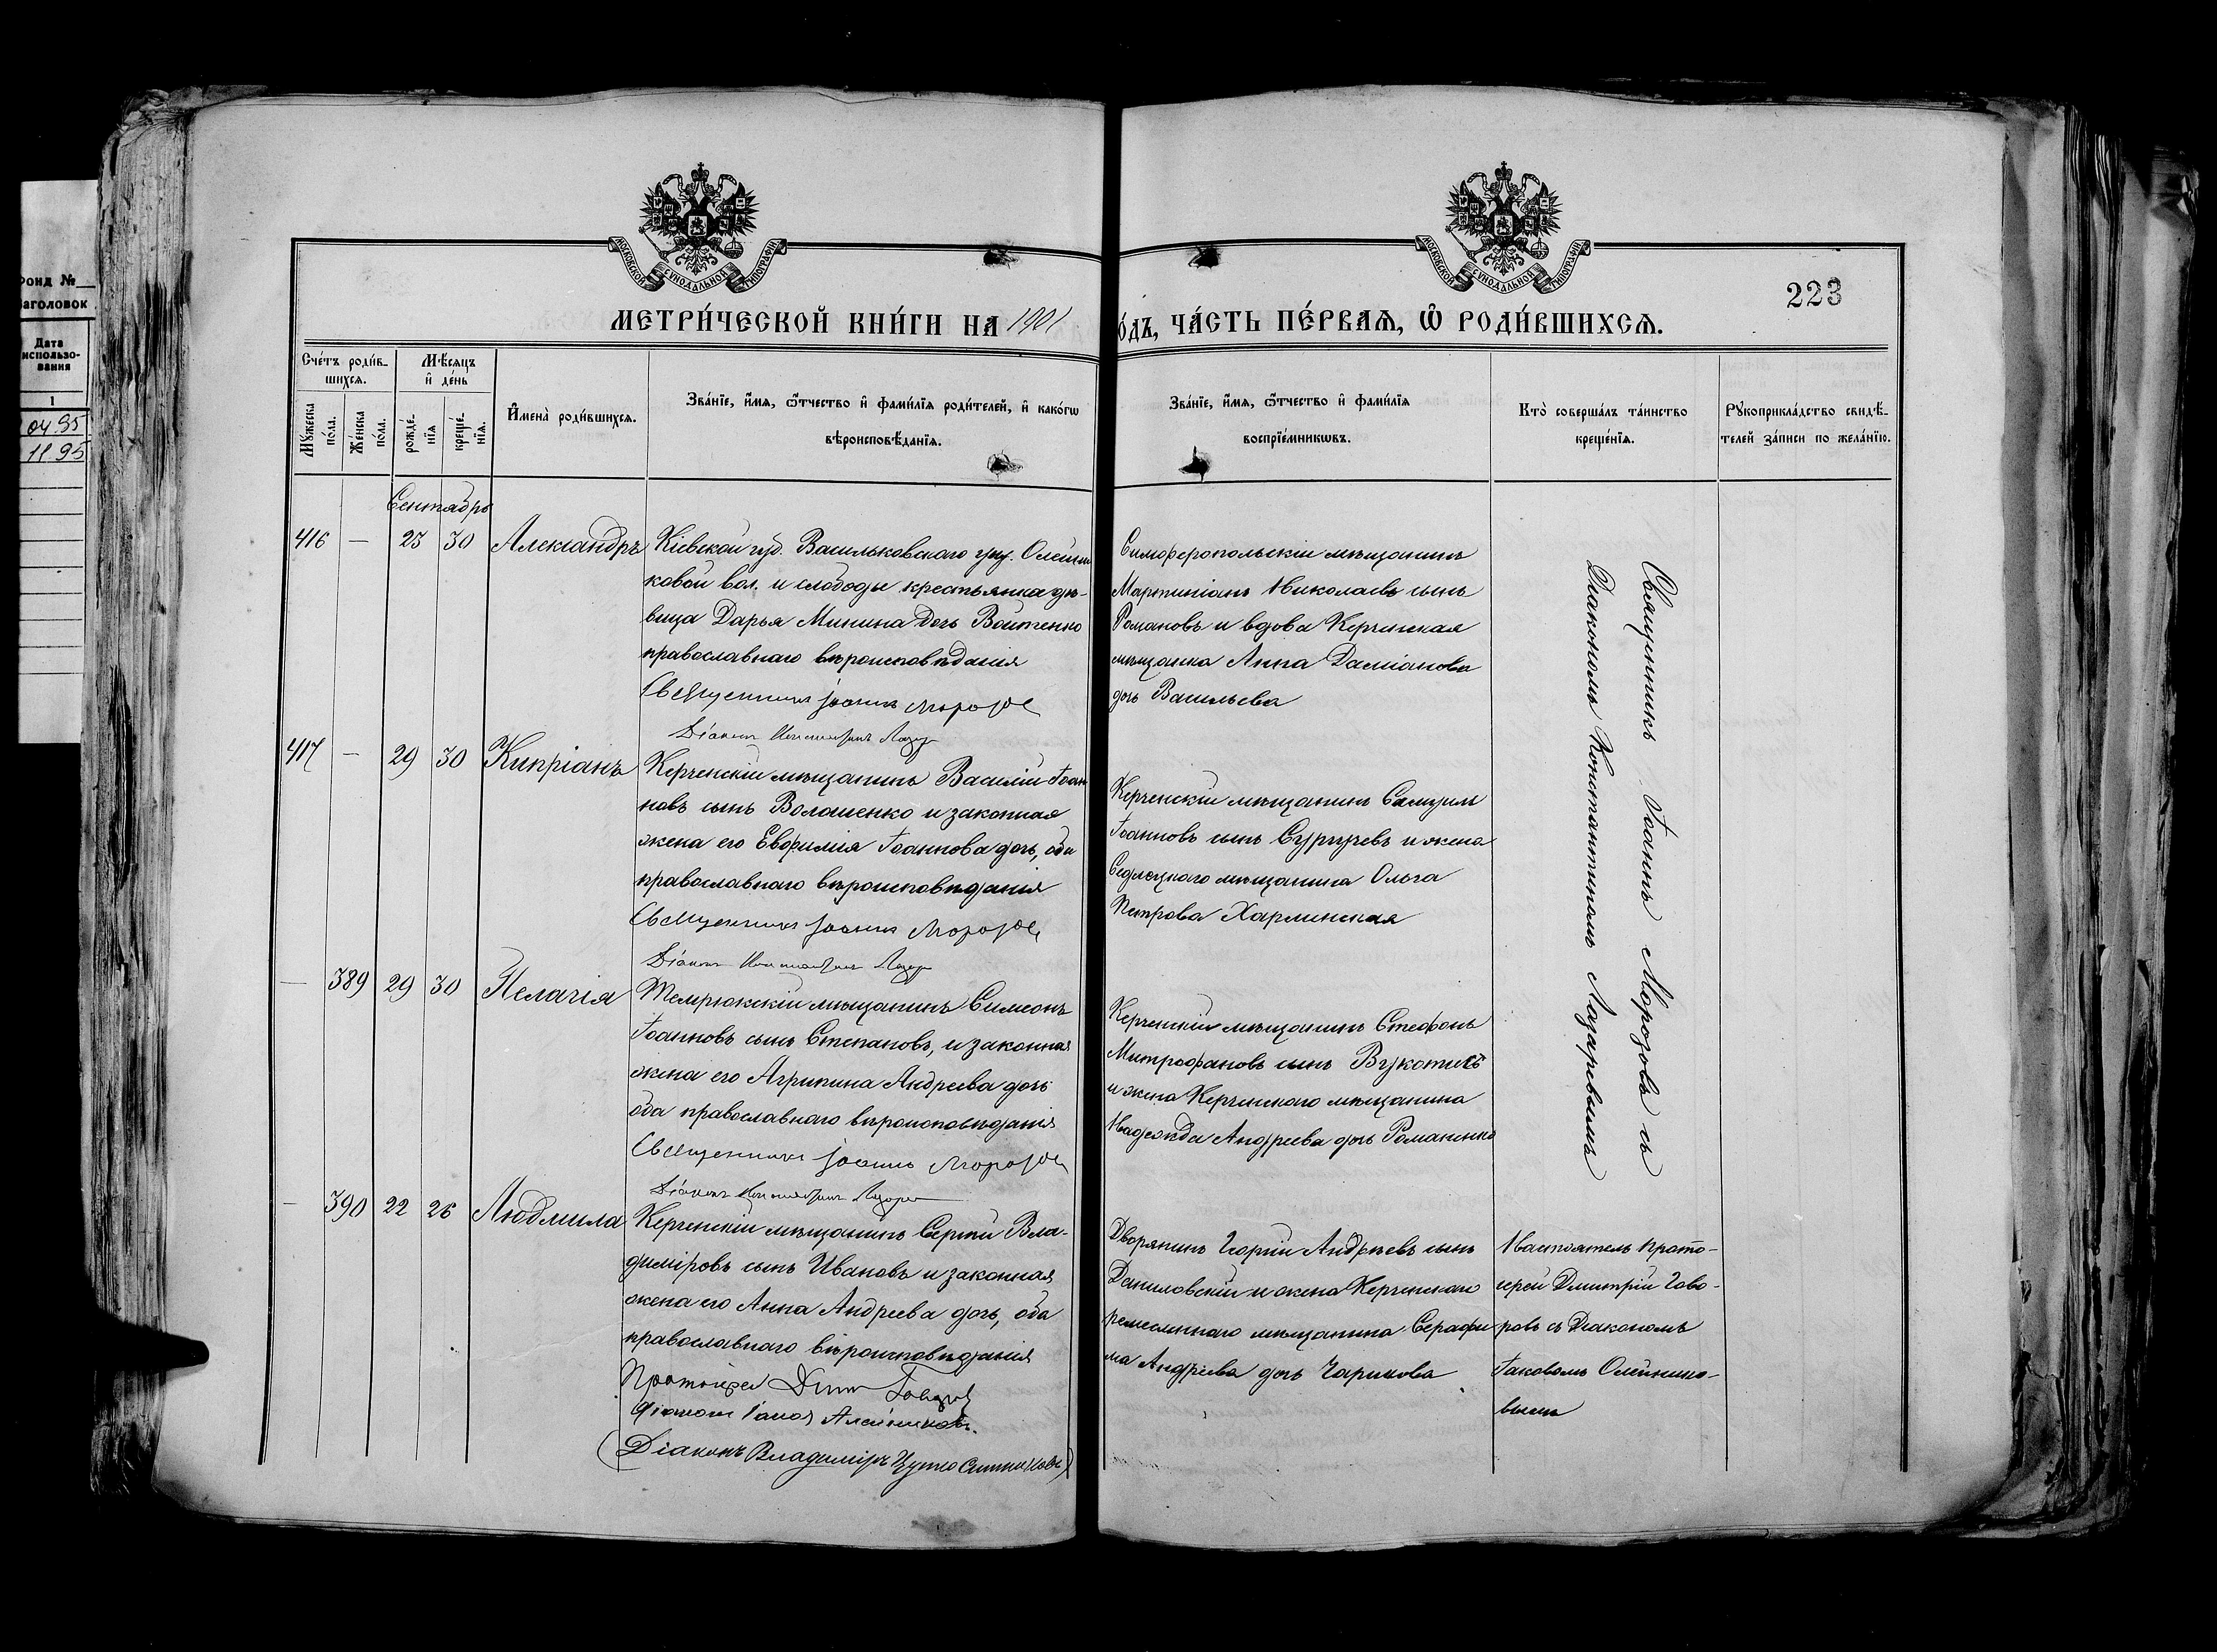 Фонд №
Заголовок
Дата
использо-
вания
1
04.95
11 95
МОСКОВСКОЙ СѴНОДАЛЬНОЙ ТИПОГРАФІИ
МОСКОВСКОЙ СѴНОДАЛЬНОЙ ТИПОГРАФІИ
223
МЕТРИ́ЧЕСКОЙ КНИ́ГИ НА 1901
О́ДЪ, ЧА́СТЬ ПЕ́РВАѦ, Ѽ РОДИ́ВШИХСѦ.
Сче́тъ роди́в-
шихсѧ.
Мꙋжеска по́ла.
Же́нска по́ла.
Мѣ́сѧцъ
и҆ де́нь
рожде́-
нїѧ
креще́-
нїѧ.
И҆мена̀ роди́вшихсѧ.
Зва́нїе, и҆́мѧ, ѻ҆́тчество и҆ фами́лїѧ роди́телей, и҆ како́гѡ
вѣроисповѣ́данїѧ.
Зва́нїе, и҆́мѧ, ѻ҆́тчество и҆ фами́лїѧ
воспрїе́мникѡвъ.
Кто̀ соверша́лъ та́инство
креще́нїѧ.
Рꙋкоприкла́дство свидѣ́-
телей за́писи по жела́нїю.
Сентябрь
416 — 23 30 Александръ
Кіевской губ. Васильковскаго уѣз. Олейни
ковой вол. и слободы крестьянка дѣ-
вица Дарья Минина дочь Войтенко
православнаго вѣроисповѣданія
Священникъ Іоаннъ Морозов
Діаконъ Константинъ Лазар
Симферопольскій мѣщанинъ
Мартиніанъ Николаевъ сынъ
Романовъ и вдова Керченская
мѣщанка Анна Даміанова
дочь Васильева
Священникъ Іоаннъ Морозовъ съ
Діакономъ Константиномъ Лазаревымъ
417 — 29 30 Кипріанъ
Керченскій мѣщанинъ Василій Іоан
новъ сынъ Волошенко и законная
жена его Евфимія Іоаннова дочь, оба
православнаго вѣроисповѣданія
Священникъ Іоаннъ Морозов
Діаконъ Константинъ Лазар
Керченскій мѣщанинъ Самуилъ
Іоанновъ сынъ Сургучевъ и жена
Седлецкаго мѣщанина Ольга
Петрова Харлинская
— 389 29 30 Пелагія
Темрюкскій мѣщанинъ Симеонъ
Іоанновъ сынъ Степановъ, и законная
жена его Агрипина Андреева дочь
оба православнаго вѣроисповѣданія
Священникъ Іоаннъ Морозов
Діаконъ Константинъ Лазарев
Керченскій мѣщанинъ Стефанъ
Митрофановъ сынъ Вукотичъ
и жена Керченскаго мѣщанина
Надежда Андреева дочь Романенко
— 390 22 26 Людмила
Керченскій мѣщанинъ Сергій Вла-
диміровъ сынъ Ивановъ и законная
жена его Анна Андреева дочь, оба
православнаго вѣроисповѣданія
Протоіерей Дим Говоров
Діаконъ Іаков Алейников.
(Діаконъ Владиміръ
Дворянинъ Георгій Андреевъ сынъ
Даниловскій и жена Керченскаго
ремесленнаго мѣщанина Серафи
ма Андреева дочь Чарикова
Настоятель прото-
іерей Димитрій Гово-
ровъ съ Діакономъ
Іаковомъ Олейнико-
вымъ